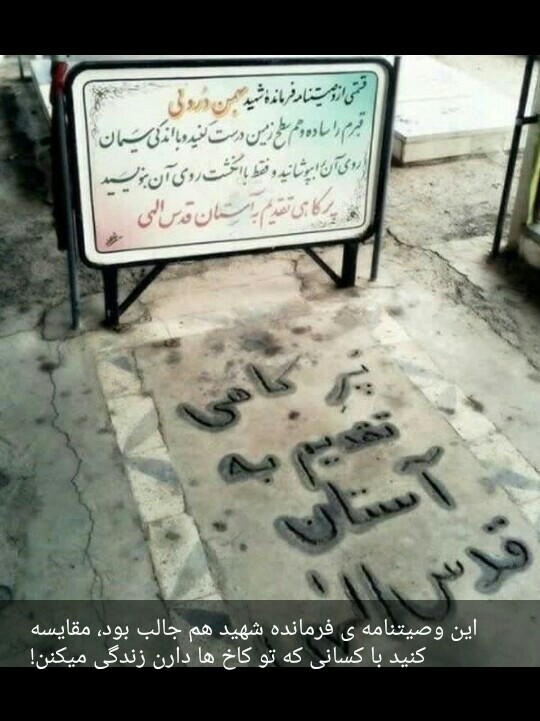 قسمتی از وصیتنامه فرمانده شهید بهمن درولی
قبرم را ساده و هم سطح زمین درست کنید و با اندکی سیمان
روی آن را بپوشانید و فقط با انگشت روی آن بنویسید
پر کاهی تقدیم به آستان قدس الهی
پر کاهی
تقدیم به
آستان
قدس الهی
این وصیتنامه ی فرمانده شهید هم جالب بود، مقایسه
کنید با کسانی که تو کاخ ها دارن زندگی میکنن!